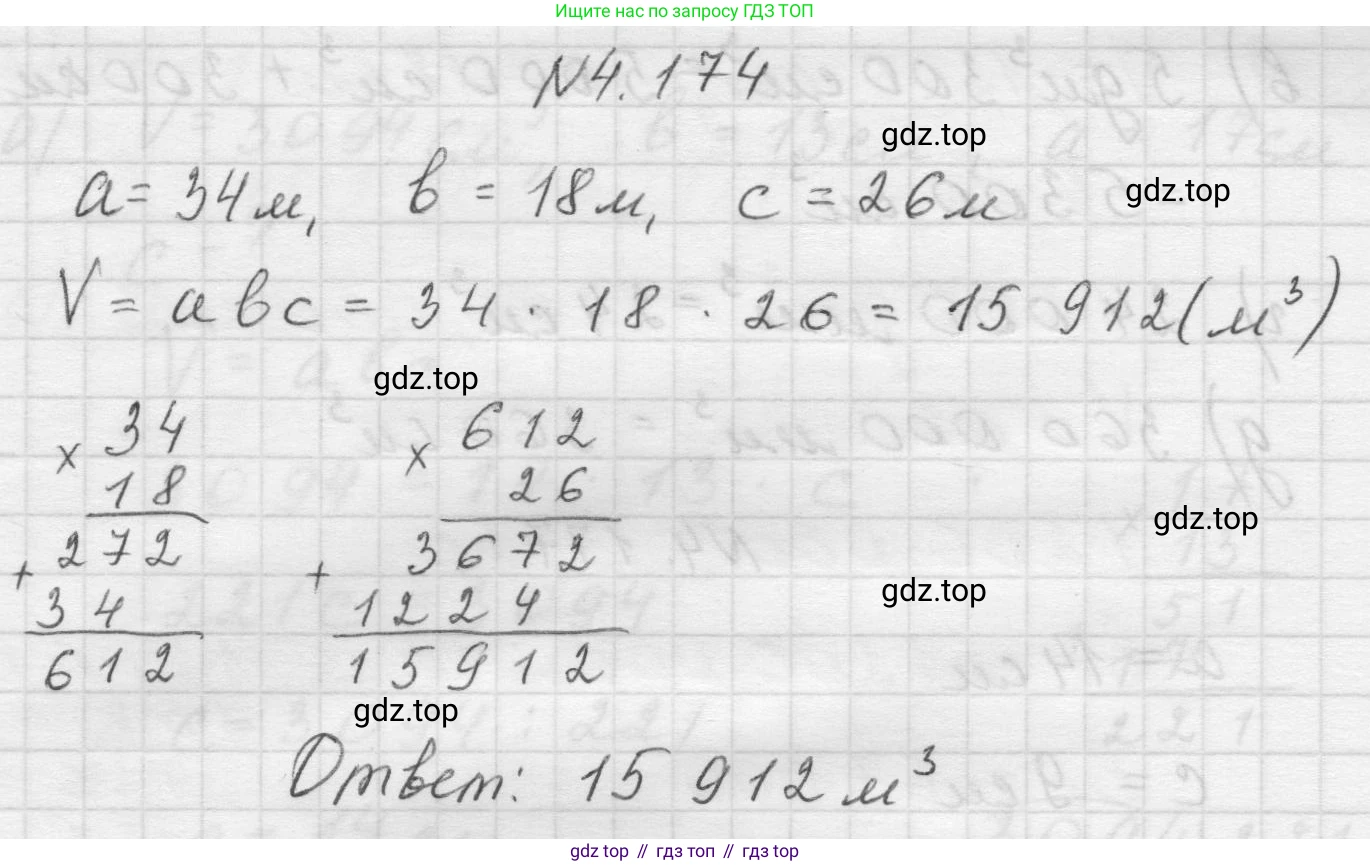 Ищите нас по запросу ГДЗ ТОП
№4.174
gdz.top
a = 34 м, b = 18 м, c = 26 м
gdz.top
V = abc = 34 · 18 · 26 = 15 912 (м³)
gdz.top
× 34
18
272
+ 34
612
× 612
26
3672
+ 1224
15912
gdz.top
gdz.top
gdz.top
Ответ: 15 912 м³
gdz top // гдз топ // гдз top